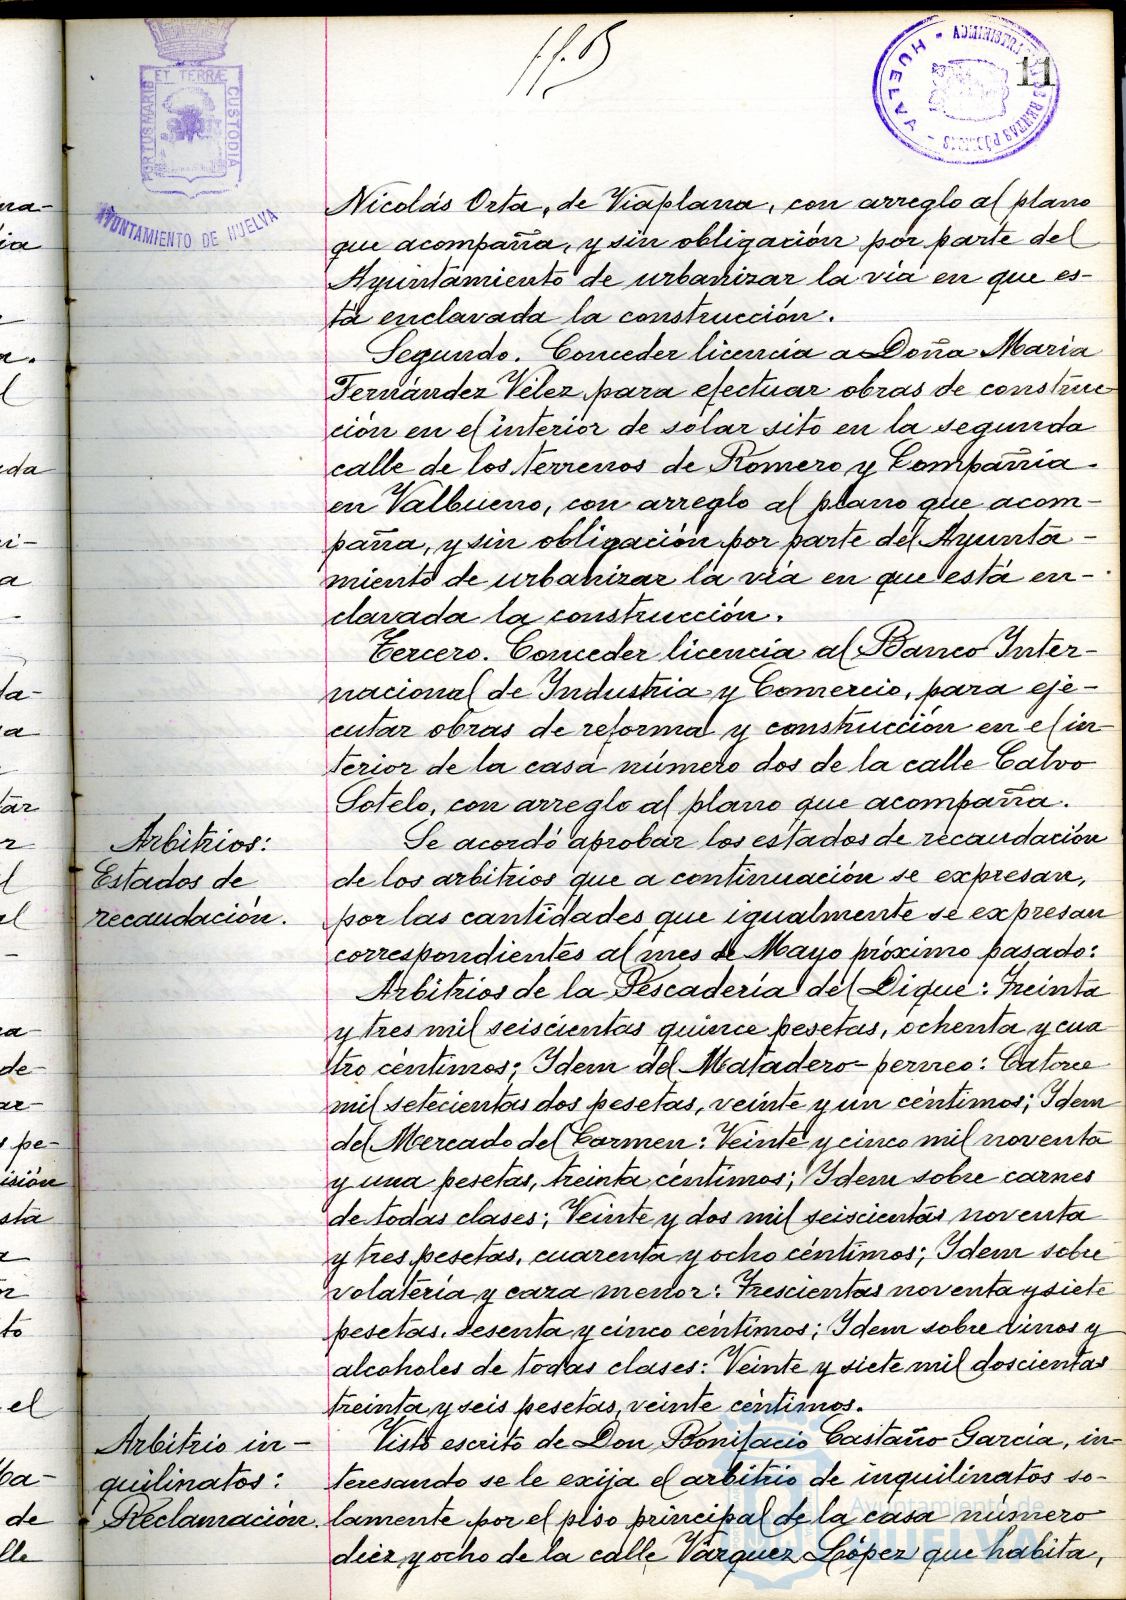 ET TERRÆ
PORTUS MARIS
CUSTODIA
AYUNTAMIENTO DE HUELVA
HUELVA
11
Nicolás Orta, de Viaplana, con arreglo al plano
que acompaña, y sin obligación por parte del
Ayuntamiento de urbanizar la vía en que es-
tá enclavada la construcción.
Segundo. Conceder licencia a Doña Maria
Fernández Vélez para efectuar obras de construc
ción en el interior de solar sito en la segunda
calle de los terrenos de Romero y Compañía
en Valbueno, con arreglo al plano que acom-
paña, y sin obligación por parte del Ayunta-
miento de urbanizar la vía en que está en-
clavada la construcción.
Tercero. Conceder licencia al Banco Inter-
nacional de Industria y Comercio, para eje-
cutar obras de reforma y construcción en el in-
terior de la casa número dos de la calle Calvo
Sotelo, con arreglo al plano que acompaña.
Arbitrios:
Estados de
recaudación.
Se acordó aprobar los estados de recaudación
de los arbitrios que a continuación se expresan,
por las cantidades que igualmente se expresan
correspondientes al mes de Mayo próximo pasado:
Arbitrios de la Pescadería del Dique: Treinta
y tres mil seiscientas quince pesetas, ochenta y cua
tro céntimos; Idem del Matadero-perneo: Catorce
mil setecientas dos pesetas, veinte y un céntimos; Idem
del Mercado del Carmen: Veinte y cinco mil noventa
y una pesetas, treinta céntimos; Idem sobre carnes
de todas clases; Veinte y dos mil seiscientas noventa
y tres pesetas, cuarenta y ocho céntimos; Idem sobre
volatería y caza menor: Trescientas noventa y siete
pesetas, sesenta y cinco céntimos; Idem sobre vinos y
alcoholes de todas clases: Veinte y siete mil doscientas
treinta y seis pesetas, veinte céntimos.
Arbitrio in-
quilinatos:
Reclamación.
Visto escrito de Don Bonifacio Castaño García, in-
teresando se le exija el arbitrio de inquilinatos so-
lamente por el piso principal de la casa número
diez y ocho de la calle Vázquez López que habita,
Ayuntamiento de
HUELVA